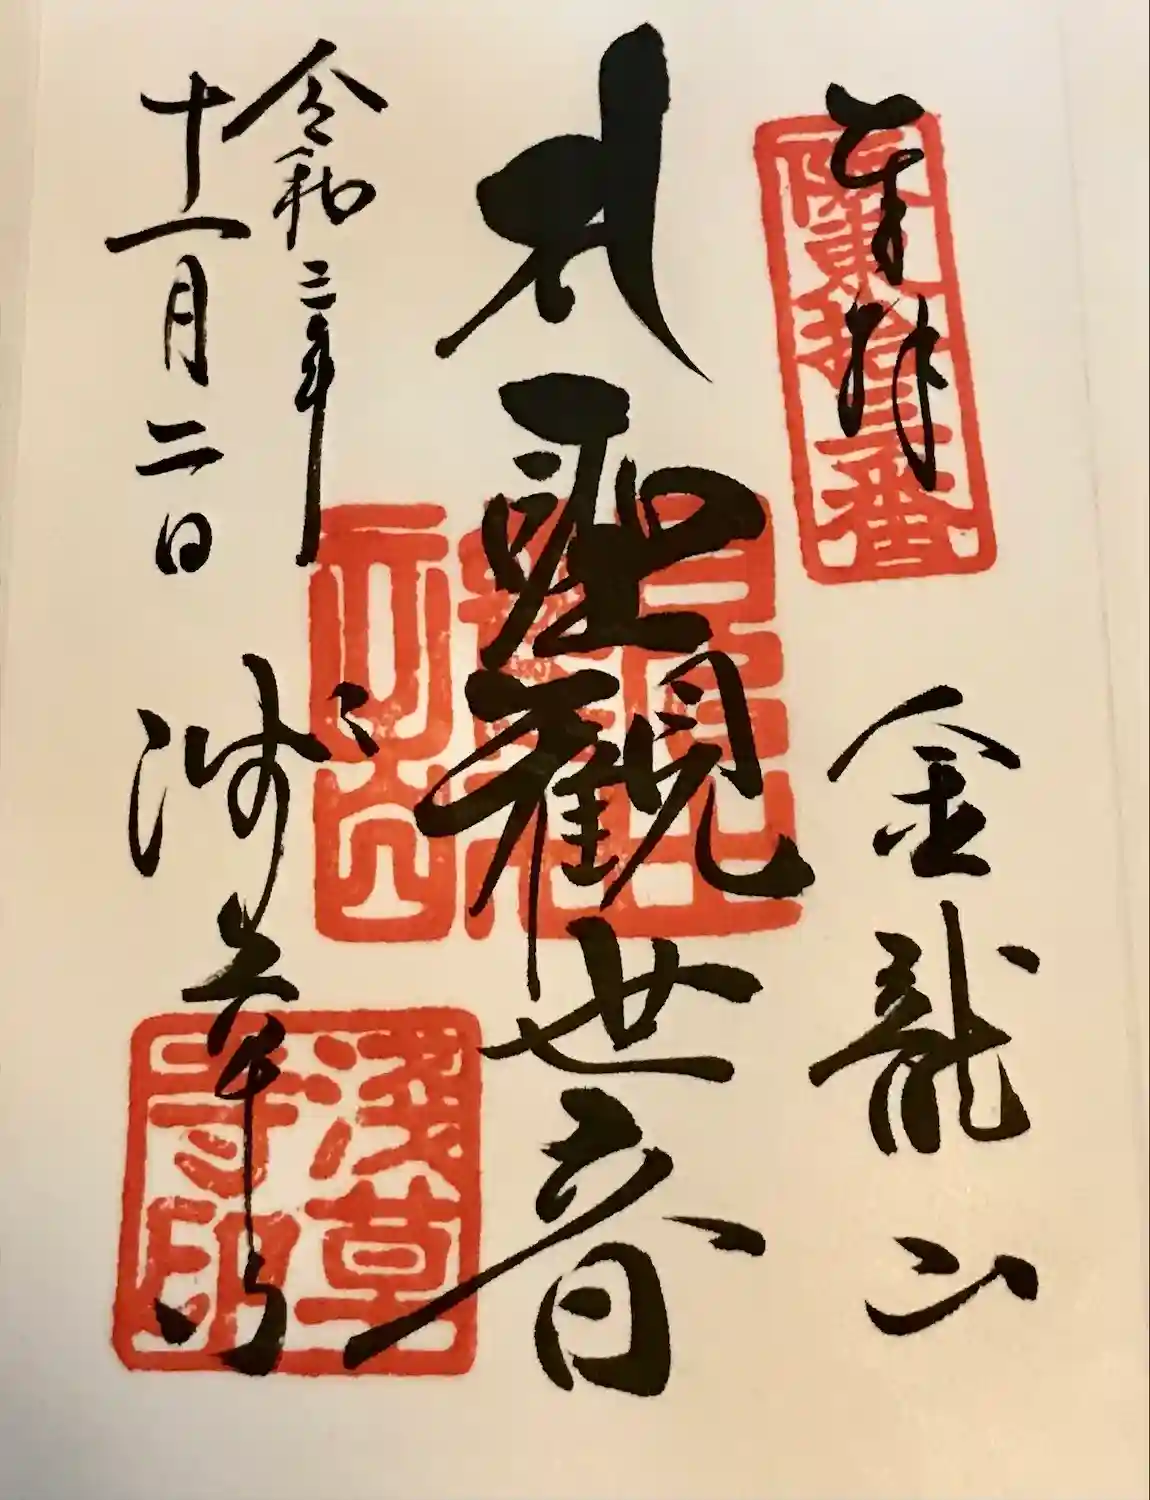 奉拝
阪東拾三番
金龍山
聖観世音
令和三年
十一月二日
浅草寺
淺草
寺印